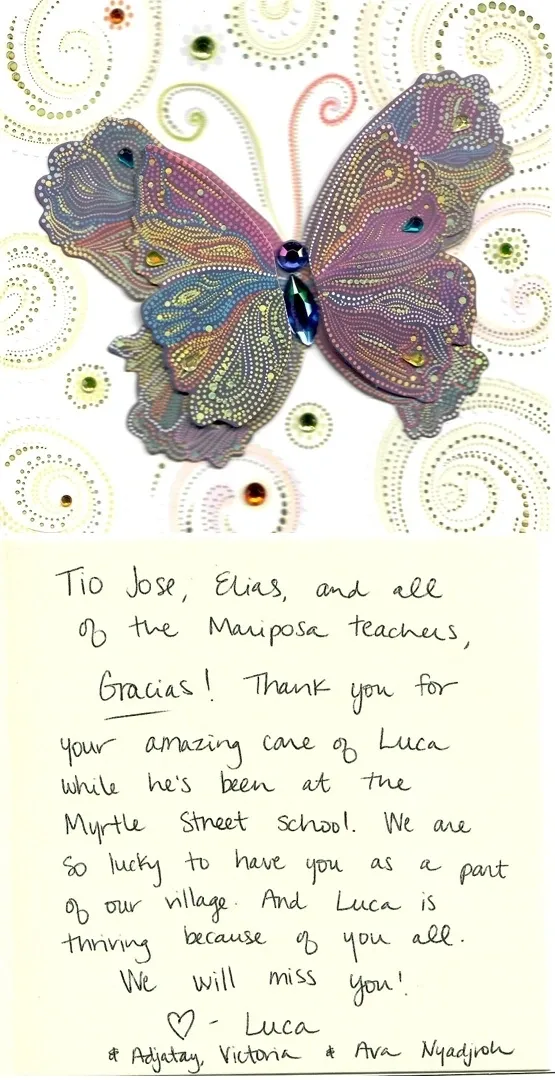 Tio Jose, Elias, and all
of the Mariposa teachers,
Gracias! Thank you for
your amazing care of Luca
while he's been at the
Myrtle Street school. We are
so lucky to have you as a part
of our village. And Luca is
thriving because of you all.
We will miss you!
♡ - Luca
& Adjatay, Victoria & Ava Nyadjroh